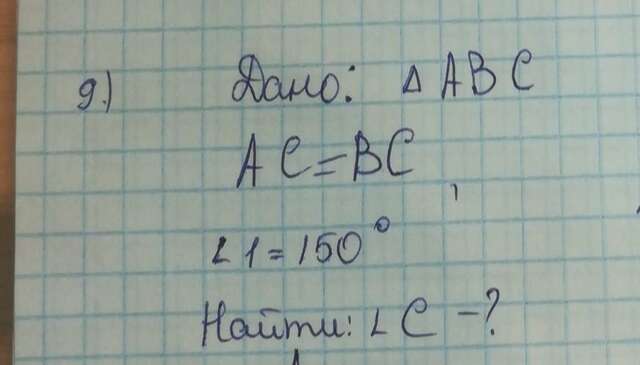 9.) Дано: Δ ABC
AC=BC
∠1=150°
Найти: ∠C -?